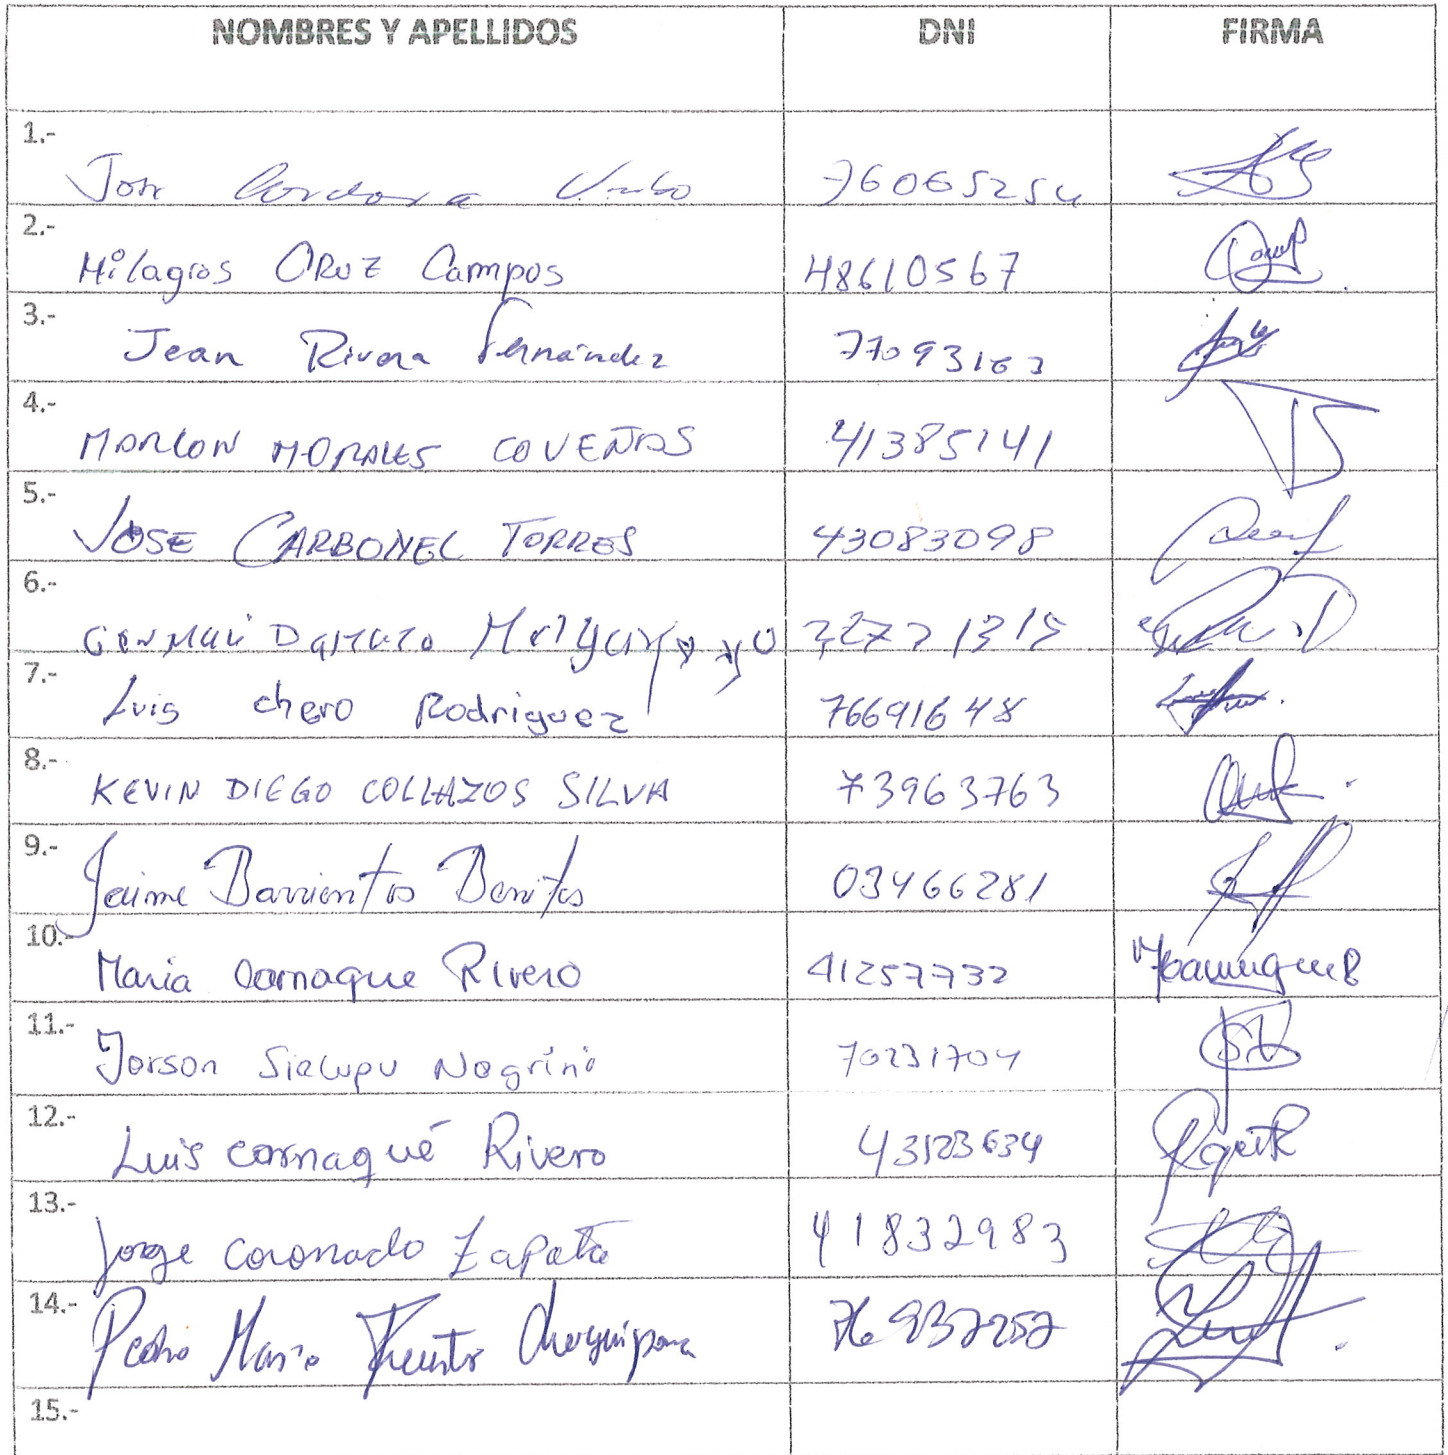 NOMBRES Y APELLIDOS DNI FIRMA
1.- Jose Cordova 76065254
2.- Milagros CRUZ Campos 48610567
3.- Jean Rivera Fernández 77093163
4.- MARLON MORALES COVEÑAS 41385141
5.- JOSE CARBONEL TORRES 43083098
6.- GERMAN
7.- Luis chero Rodriguez 76691648
8.- KEVIN DIEGO COLLAZOS SILVA 73963763
9.- Jaime Barrientos Benites 03466281
10.- Maria Carnaque Rivero 41257732
11.- Jorson Sialupu Nogrini 70231704
12.- Luis carnaqué Rivero 43123634
13.- Jorge Coronado Zapata 41832983
14.- Pedro Mario
15.-